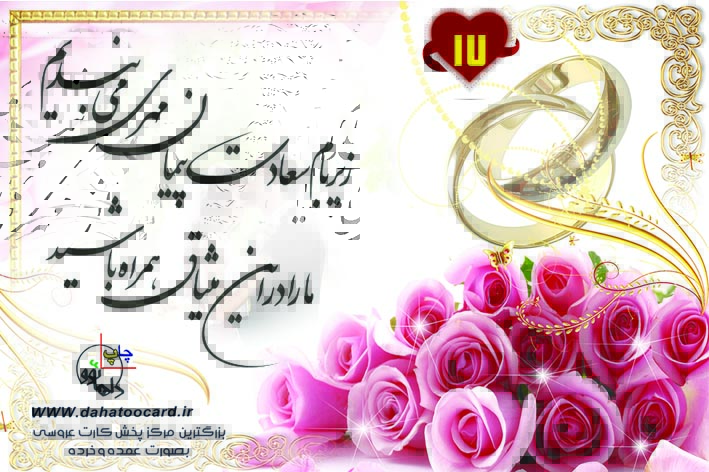 ۱۷
زیر بام سعادت پیمان مهر می بندیم
ما را در این میثاق همراه باشید
چاپ
دهاتو
www.dahatoocard.ir
بزرگترین مرکز پخش کارت عروسی
بصورت عمده و خرده